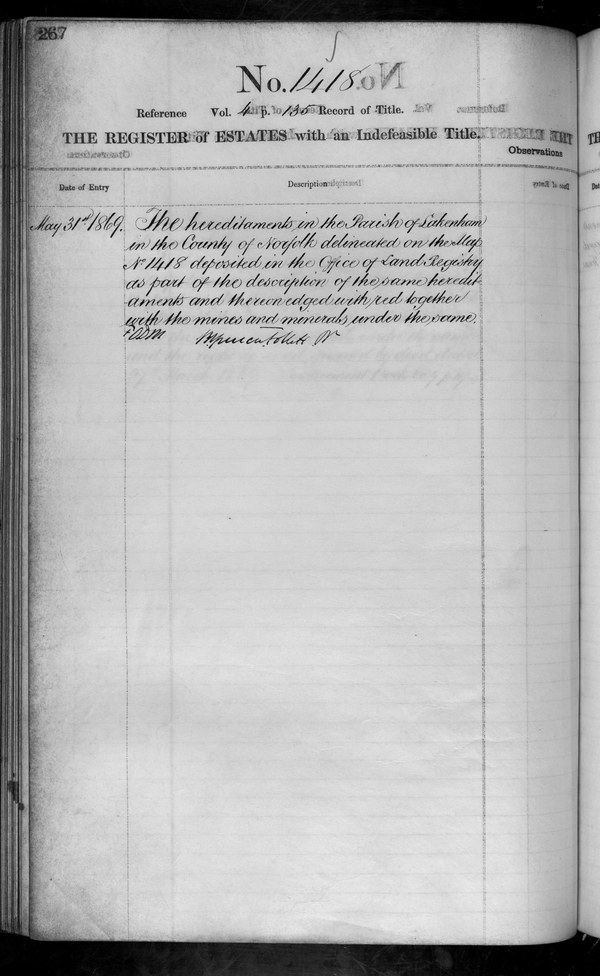 267
No. 1418
Reference Vol. 4 p. 135 Record of Title.
THE REGISTER of ESTATES with an Indefeasible Title.
Observations
Date of Entry
Description
May 31st 1869.
The hereditaments in the Parish of Lakenham
in the County of Norfolk delineated on the Map
No 1418 deposited in the Office of Land Registry
as part of the description of the same heredit-
aments and thereon edged with red together
with the mines and minerals under the same.